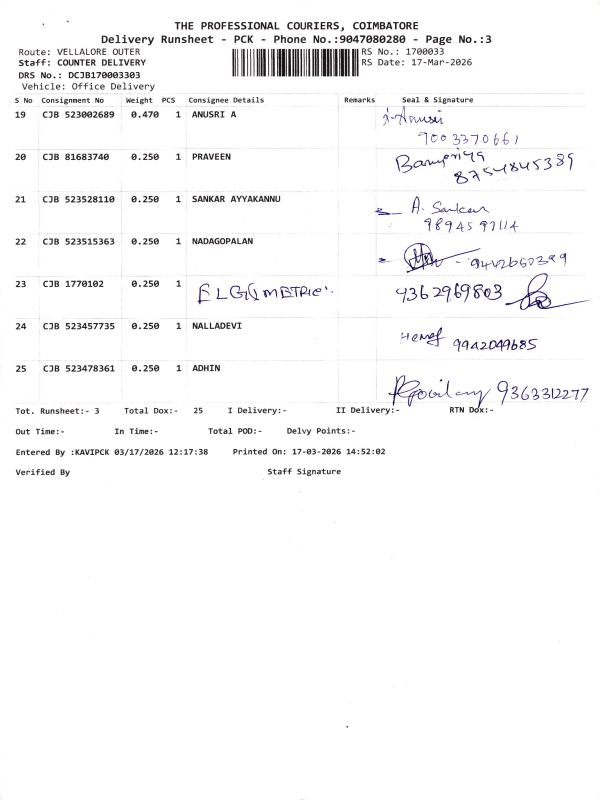 THE PROFESSIONAL COURIERS, COIMBATORE
Delivery Runsheet - PCK - Phone No.:9047080280 - Page No.:3
Route: VELLALORE OUTER
RS No.: 1700033
Staff: COUNTER DELIVERY
RS Date: 17-Mar-2026
DRS No.: DCJB170003303
Vehicle: Office Delivery
S No Consignment No Weight PCS Consignee Details Remarks Seal & Signature
19 CJB 523002689 0.470 1 ANUSRI A
9003370661
20 CJB 81683740 0.250 1 PRAVEEN
8754845389
21 CJB 523528110 0.250 1 SANKAR AYYAKANNU A. Sankar
9894597114
22 CJB 523515363 0.250 1 NADAGOPALAN
23 CJB 1770102 0.250 1 9362969803
24 CJB 523457735 0.250 1 NALLADEVI
9942049685
25 CJB 523478361 0.250 1 ADHIN
9363312277
Tot. Runsheet:- 3 Total Dox:- 25 I Delivery:- II Delivery:- RTN Dox:-
Out Time:- In Time:- Total POD:- Delvy Points:-
Entered By :KAVIPCK 03/17/2026 12:17:38 Printed On: 17-03-2026 14:52:02
Verified By Staff Signature